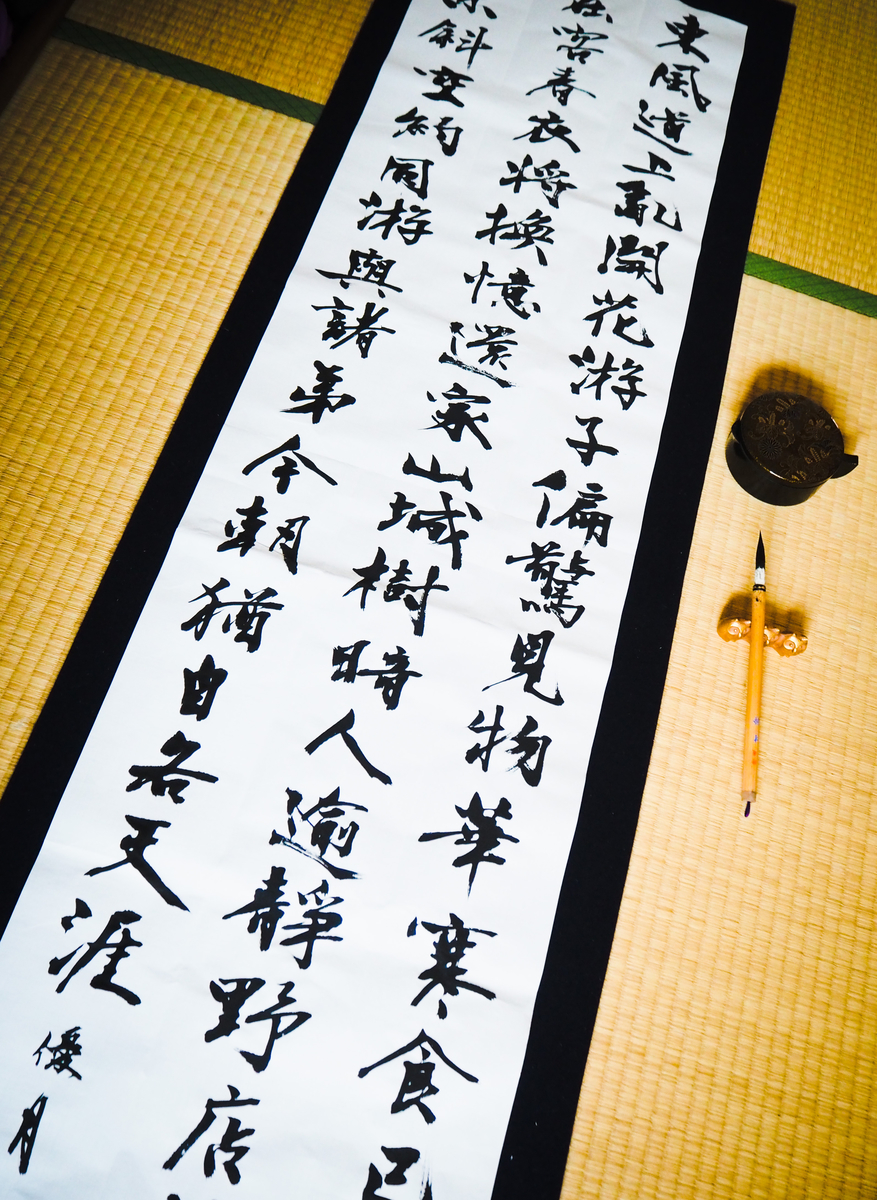 東風道上亂開花游子偏驚見物華寒食已
客春衣將換憶還家山城樹暗人逾靜野店
斜空約同游與諸弟今朝猶自各天涯
優月